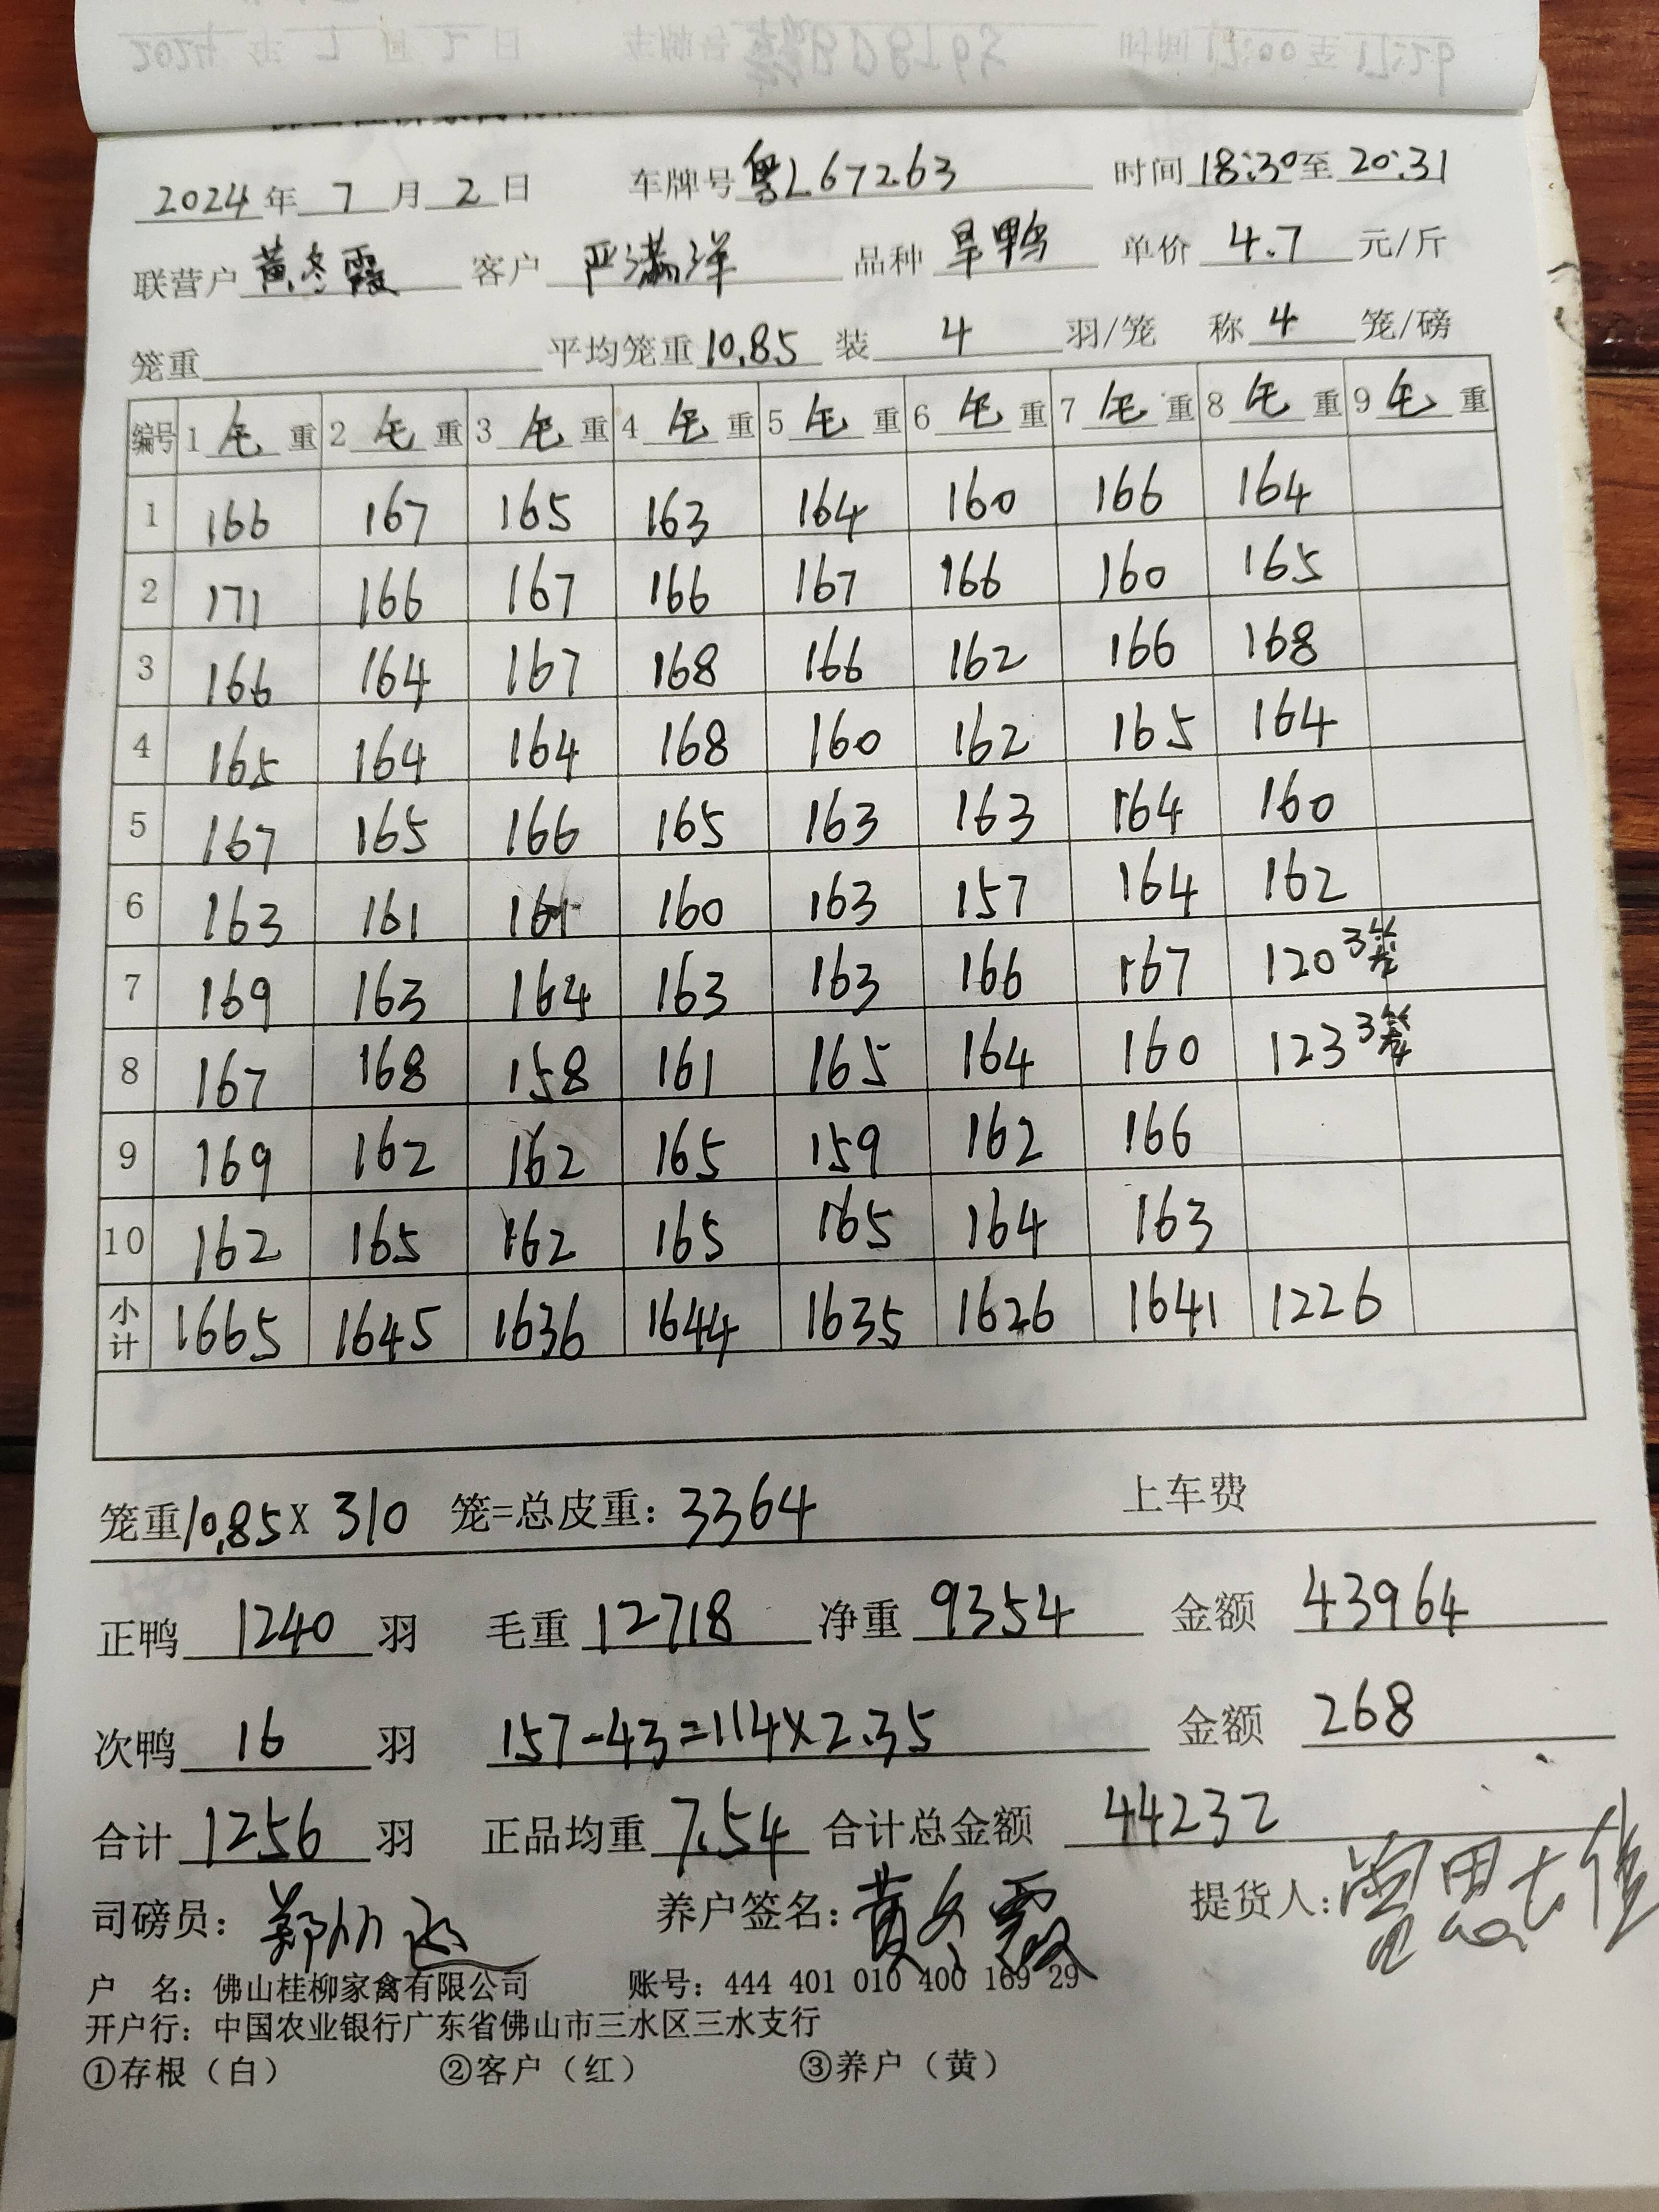 2024年7月2日 车牌号粤L67263 时间18:30至20:31
联营户黄冬霞 客户严满洋 品种旱鸭 单价4.7元/斤
笼重 平均笼重10.85 装4羽/笼 称4笼/磅
编号 1毛重 2毛重 3毛重 4毛重 5毛重 6毛重 7毛重 8毛重 9毛重
1 166 167 165 163 164 160 166 164
2 171 166 167 166 167 166 160 165
3 166 164 167 168 166 162 166 168
4 165 164 164 168 160 162 165 164
5 167 165 166 165 163 163 164 160
6 163 161 161 160 163 157 164 162
7 169 163 164 163 163 166 167 120 3笼
8 167 168 158 161 165 164 160 123 3笼
9 169 162 162 165 159 162 166
10 162 165 162 165 165 164 163
小计 1665 1645 1636 1644 1635 1626 1641 1226
笼重10.85X 310 笼=总皮重:3364 上车费
正鸭1240羽 毛重12718 净重9354 金额43964
次鸭16羽 157-43=114×2.35 金额268
合计1256羽 正品均重7.54 合计总金额44232
司磅员:郑 养户签名:黄冬霞 提货人:
户 名:佛山桂柳家禽有限公司 账号:444 401 010 400 169 29
开户行:中国农业银行广东省佛山市三水区三水支行
①存根(白) ②客户(红) ③养户(黄)